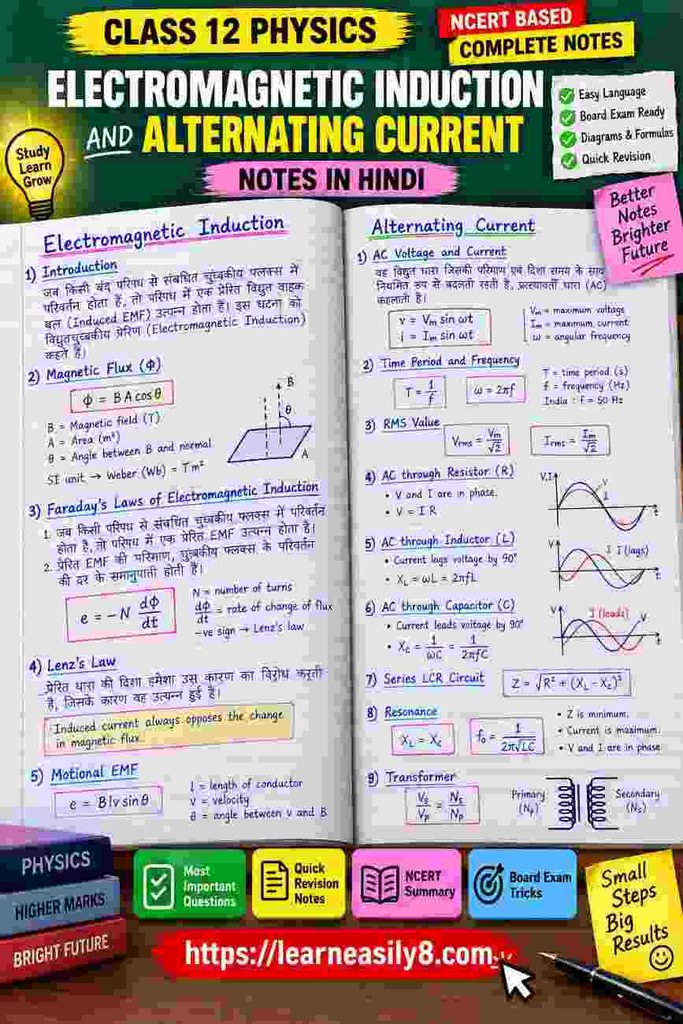 CLASS 12 PHYSICS
NCERT BASED
COMPLETE NOTES
ELECTROMAGNETIC INDUCTION
AND ALTERNATING CURRENT
NOTES IN HINDI
Easy Language
Board Exam Ready
Diagrams & Formulas
Quick Revision
Study
Learn
Grow
Better
Notes
Brighter
Future
Electromagnetic Induction
1) Introduction
जब किसी बंद परिपथ से संबंधित चुम्बकीय फ्लक्स में
परिवर्तन होता है, तो परिपथ में एक प्रेरित विद्युत वाहक
बल (Induced EMF) उत्पन्न होता है। इस घटना को
विद्युतचुम्बकीय प्रेरण (Electromagnetic Induction)
कहते हैं।
2) Magnetic Flux (Φ)
Φ = B A cos θ
B = Magnetic field (T)
A = Area (m²)
θ = Angle between B and normal
SI unit → Weber (Wb) = Tm²
B
θ
A
3) Faraday's Laws of Electromagnetic Induction
1. जब किसी परिपथ से संबंधित चुम्बकीय फ्लक्स में परिवर्तन
होता है, तो परिपथ में एक प्रेरित EMF उत्पन्न होता है।
2. प्रेरित EMF की परिमाण, चुम्बकीय फ्लक्स के परिवर्तन
की दर के समानुपाती होती है।
e = -N dΦ/dt
N = number of turns
dΦ/dt = rate of change of flux
-ve sign → Lenz's law
4) Lenz's Law
प्रेरित धारा की दिशा हमेशा उस कारण का विरोध करती
है, जिसके कारण वह उत्पन्न हुई है।
Induced current always opposes the change
in magnetic flux
5) Motional EMF
e = Blv sin θ
l = length of conductor
v = velocity
θ = angle between v and B
Alternating Current
1) AC Voltage and Current
वह विद्युत धारा जिसकी परिमाण एवं दिशा समय के साथ
नियमित रूप से बदलती रहती है, प्रत्यावर्ती धारा (AC)
कहलाती है।
v = Vm sin ωt
i = Im sin ωt
Vm = maximum voltage
Im = maximum current
ω = angular frequency
2) Time Period and Frequency
T = 1/f
ω = 2πf
T = time period (s)
f = frequency (Hz)
India : f = 50 Hz
3) RMS Value
Vrms = Vm/√2
Irms = Im/√2
4) AC through Resistor (R)
• V and I are in phase.
• V = I R
V,I
t
5) AC through Inductor (L)
• Current lags voltage by 90°
• XL = ωL = 2πfL
V
I (lags)
t
6) AC through Capacitor (C)
• Current leads voltage by 90°
• XC = 1/ωC = 1/2πfC
V
I (leads)
V
t
7) Series LCR Circuit
Z = √R² + (XL - XC)²
8) Resonance
XL = XC
f₀ = 1/2π√LC
• Z is minimum.
• Current is maximum.
• V and I are in phase
9) Transformer
Vs/Vp = Ns/Np
Primary
(Np)
Secondary
(Ns)
PHYSICS
HIGHER MARKS
BRIGHT FUTURE
Most
Important
Questions
Quick
Revision
Notes
NCERT
Summary
Board Exam
Tricks
Small
Steps
Big
Results
https://learneasily8.com